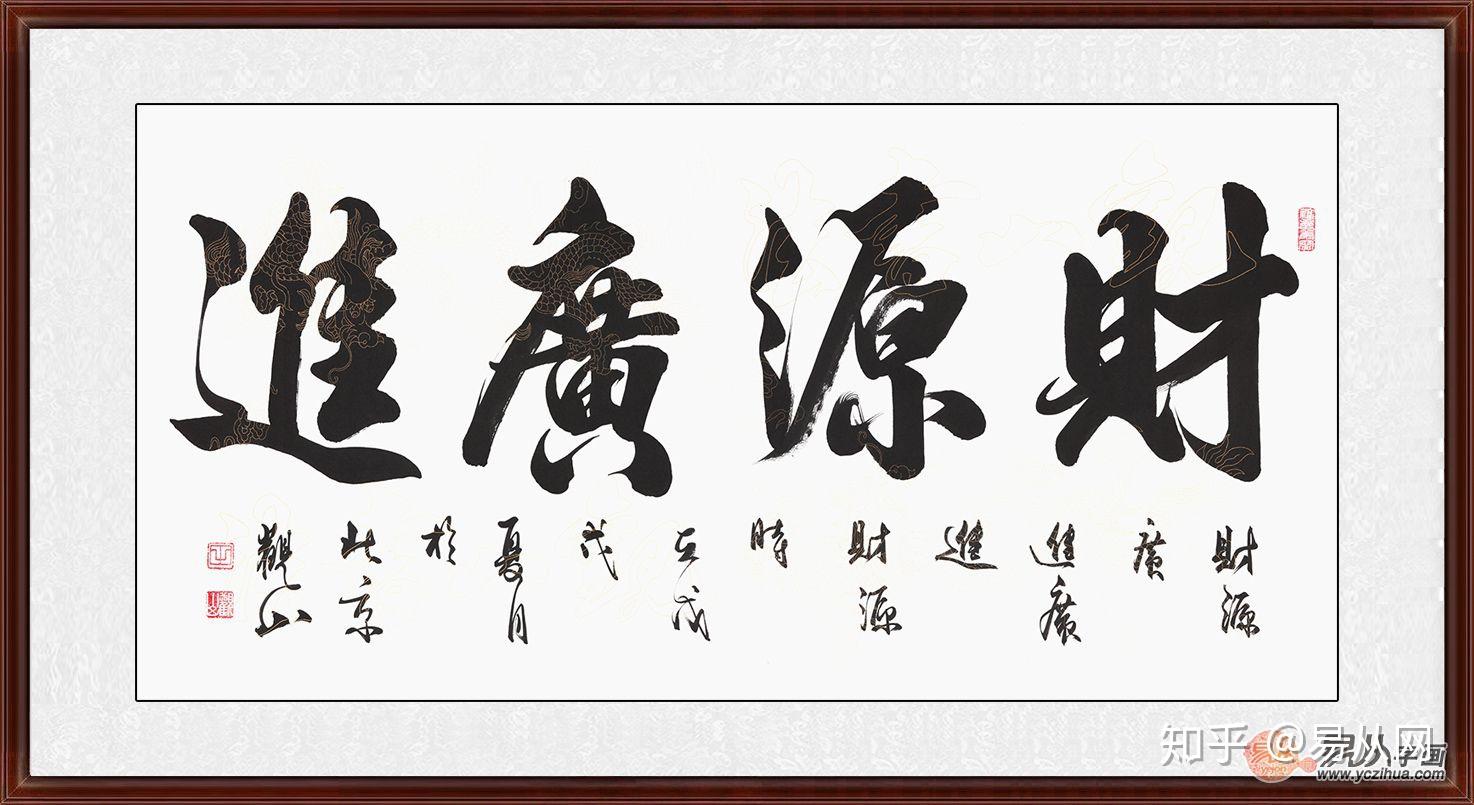 財源廣進
財源
廣
進廣
進
財源
時
在戊
戌
夏月
於
北京
觀山
知乎 @易从网
易从字画
www.yczihua.com